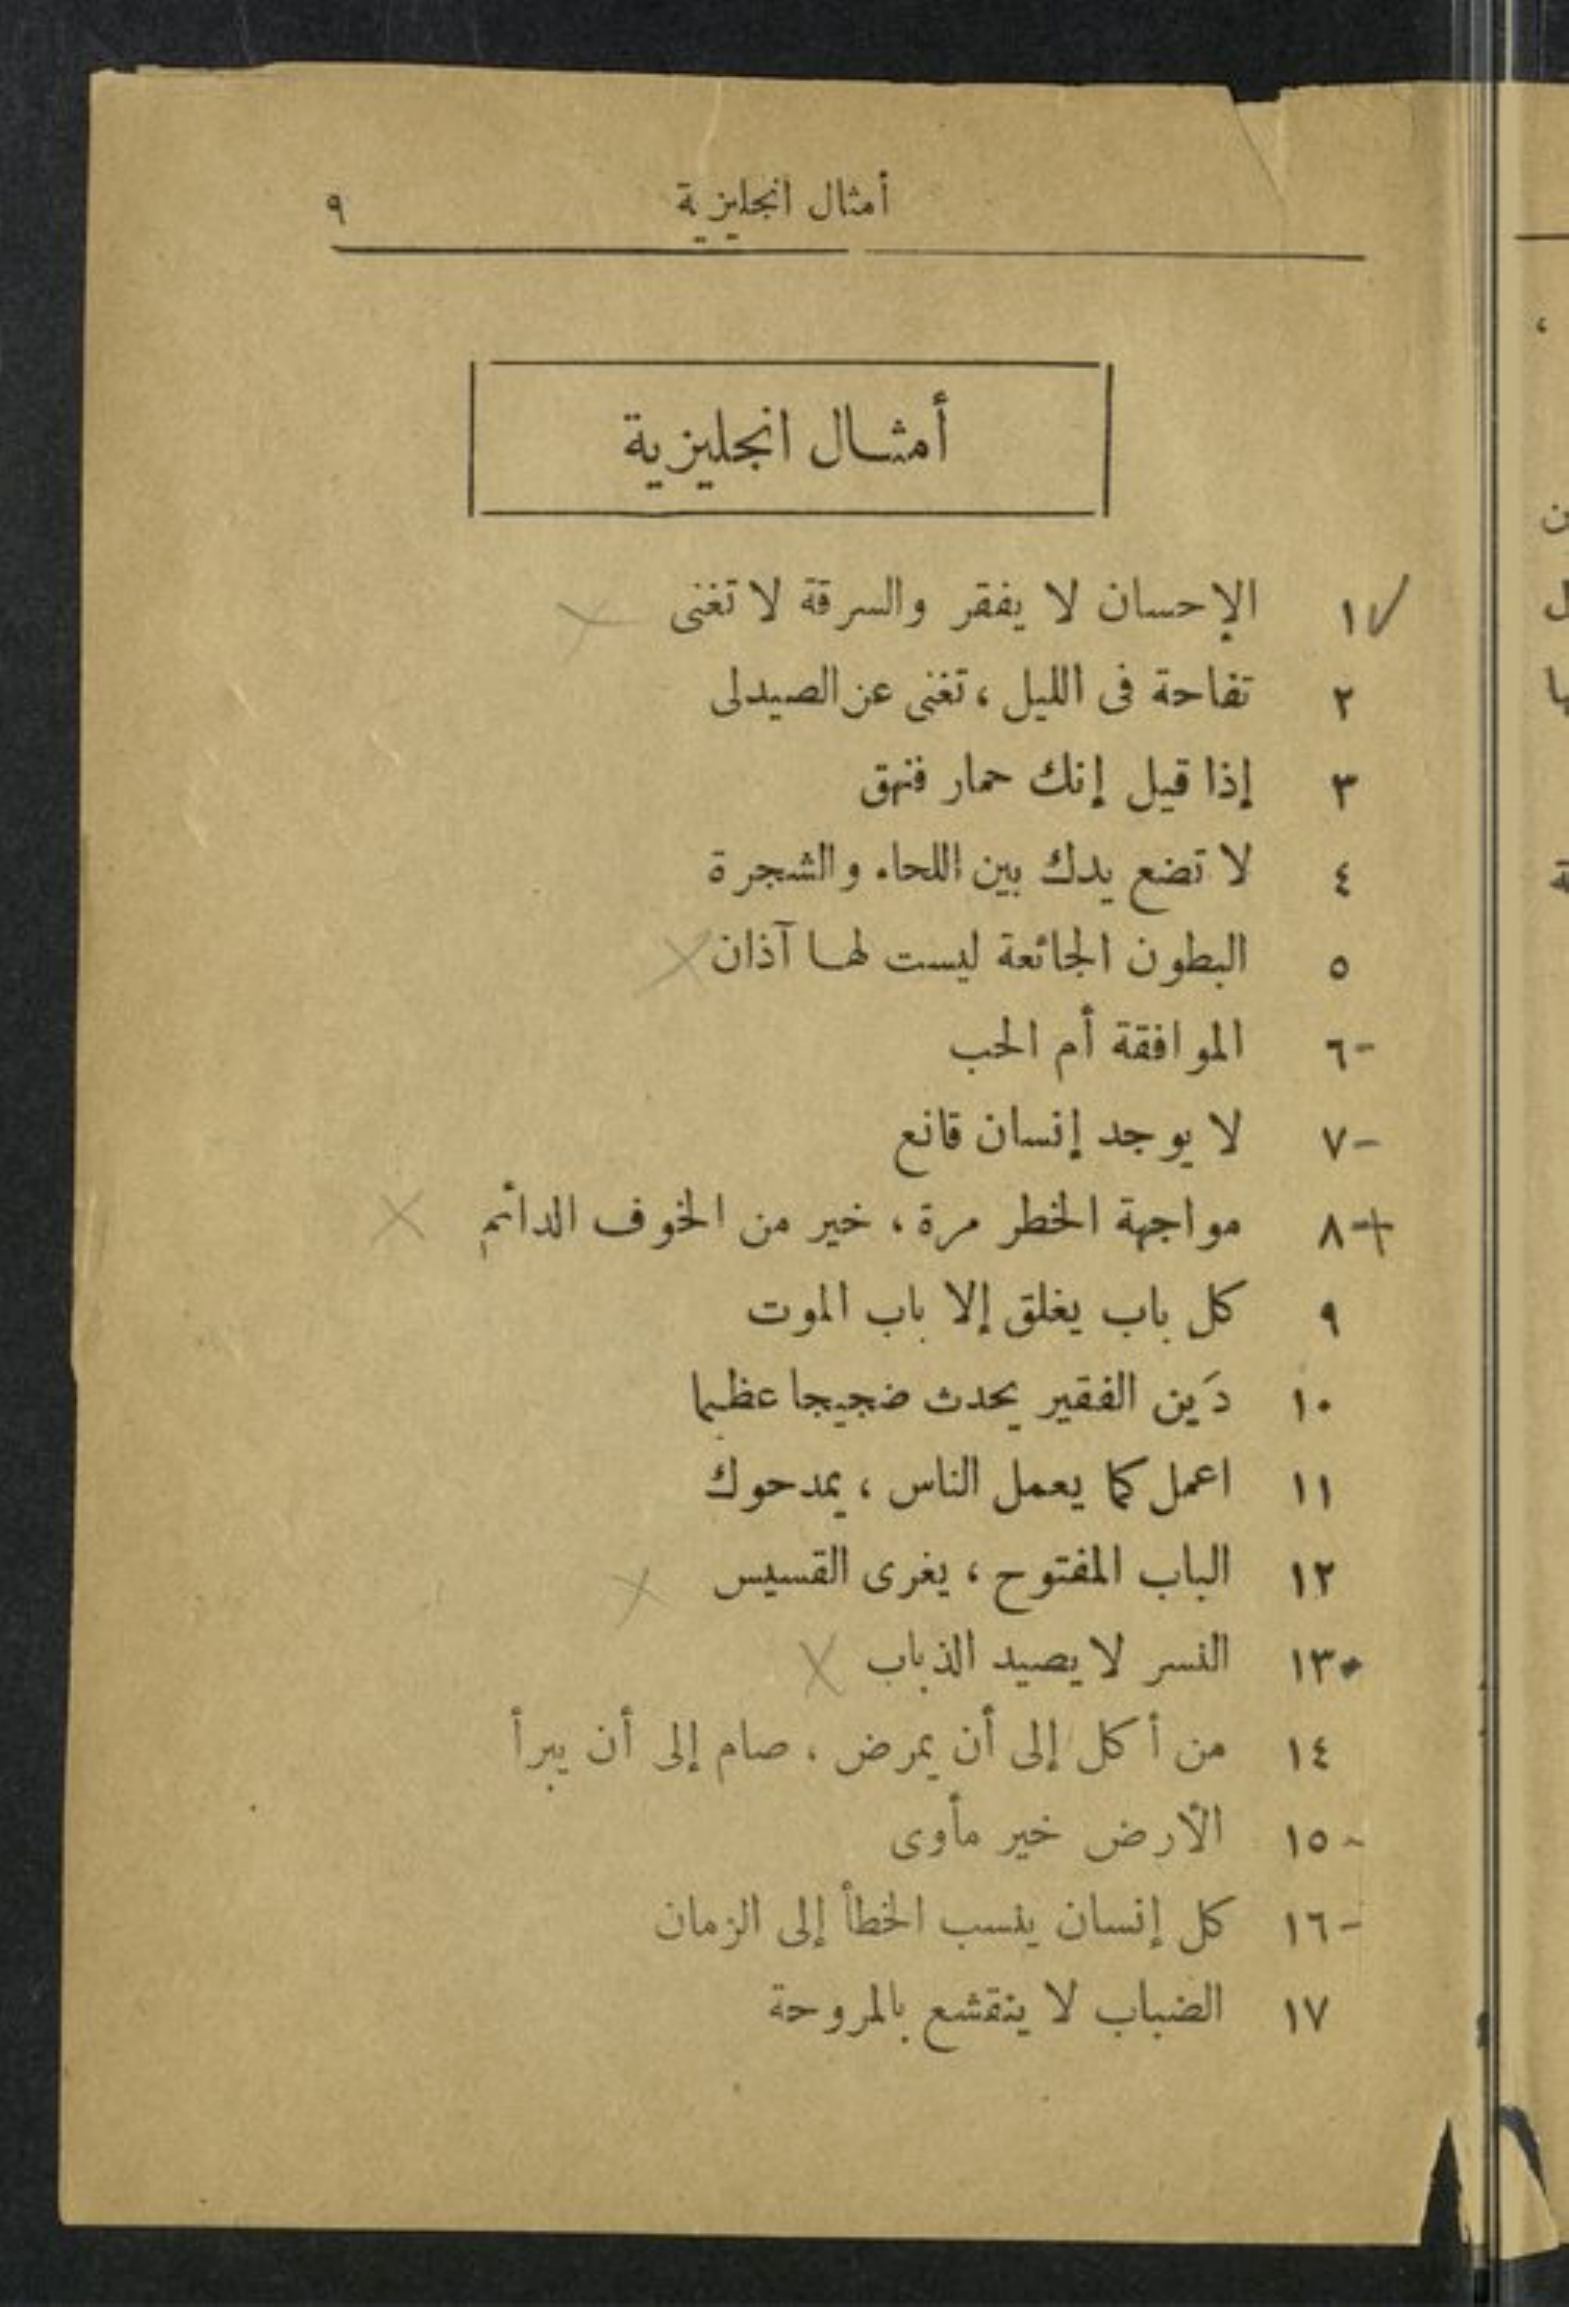 أمثال انجليزية ٩
أمثال انجليزية
١ الإحسان لا يفقر والسرقة لا تغنى
٢ تفاحة فى الليل ، تغنى عن الصيدلى
٣ إذا قيل إنك حمار فنهق
٤ لا تضع يدك بين اللحاء والشجرة
٥ البطون الجائعة ليست لها آذان
٦ الموافقة أم الحب
٧ لا يوجد إنسان قانع
٨ مواجهة الخطر مرة ، خير من الخوف الدائم
٩ كل باب يغلق إلا باب الموت
١٠ دَين الفقير يحدث ضجيجا عظيما
١١ اعمل كما يعمل الناس ، يمدحوك
١٢ الباب المفتوح ، يغرى القسيس
١٣ النسر لا يصيد الذباب
١٤ من أكل إلى أن يمرض ، صام إلى أن يبرأ
١٥ الأرض خير مأوى
١٦ كل إنسان ينسب الخطأ إلى الزمان
١٧ الضباب لا ينقشع بالمروحة